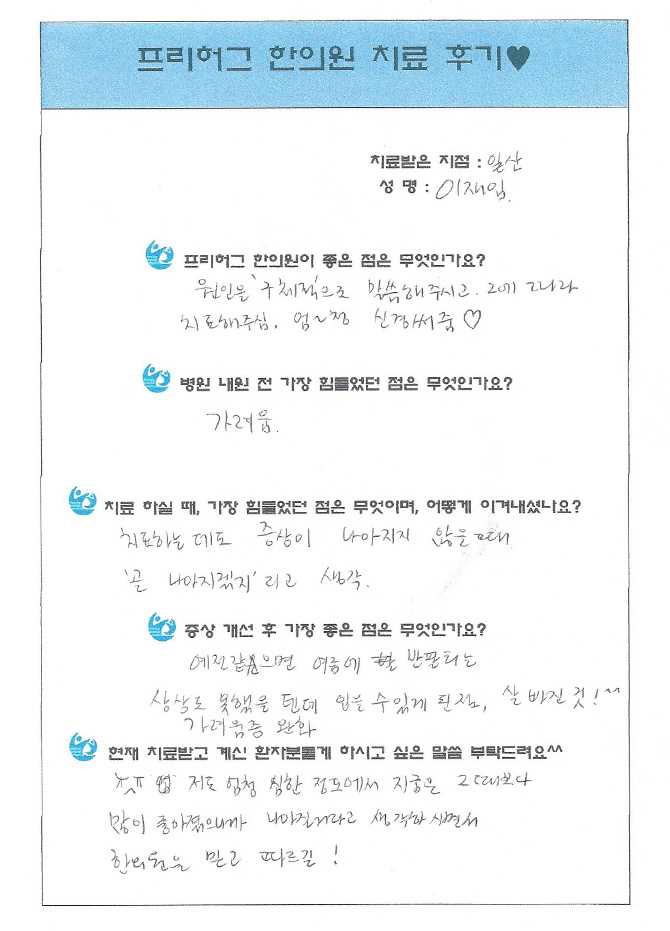 프리허그 한의원 치료 후기♥
치료받은 지점 : 일산
성 명 : 이재임
프리허그 한의원이 좋은 점은 무엇인가요?
원인을 '구체적'으로 말씀해주시고. 그에 따라
치료해주심. 엄~청 신경써줌♡
병원 내원 전 가장 힘들었던 점은 무엇인가요?
가려움.
치료 하실 때, 가장 힘들었던 점은 무엇이며, 어떻게 이겨내셨나요?
치료하는데도 증상이 나아지지 않을 때
'곧 나아지겠지'라고 생각.
증상 개선 후 가장 좋은 점은 무엇인가요?
예전같았으면 여름에 반팔티는
상상도 못했을 텐데 입을 수 있게 된점, 살 빠진 것!^^
가려움증 완화
현재 치료받고 계신 환자분들께 하시고 싶은 말씀 부탁드려요^^
저도 엄청 심한 정도에서 지금은 그때보다
많이 좋아졌으니까 나아질거라고 생각하시면서
한의원을 믿고 따르길!